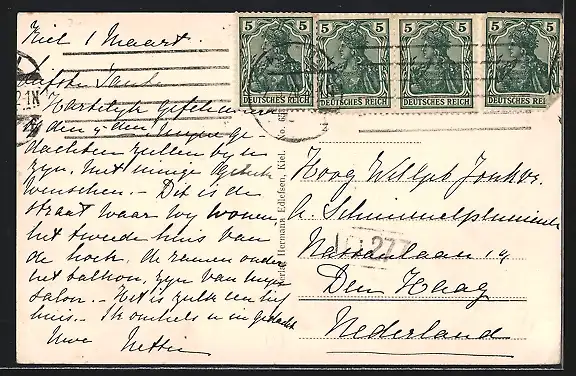 Kiel 1 Maart.
Liefste Tante
Hartelijk gefeliciteerd
den 5den. Mijn ge-
dachten zullen bij u
zijn, met innige
wenschen. - Dit is de
straat waar wij wonen,
het tweede huis van
de hoek, de ramen onder
het balkon, zijn van mijn
salon. - Het is zulk een lief
huis. - Ik omhels u in gedacht
Uwe Nettie
5 5
DEUTSCHES REICH
5 5
DEUTSCHES REICH
5 5
DEUTSCHES REICH
5 5
DEUTSCHES REICH
Verlag Hermann Edlefsen, Kiel. No.
Hoog Welgeb Jonkvr.
Schimmelpenninck
Nassaulaan 19
277
Den Haag
Nederland